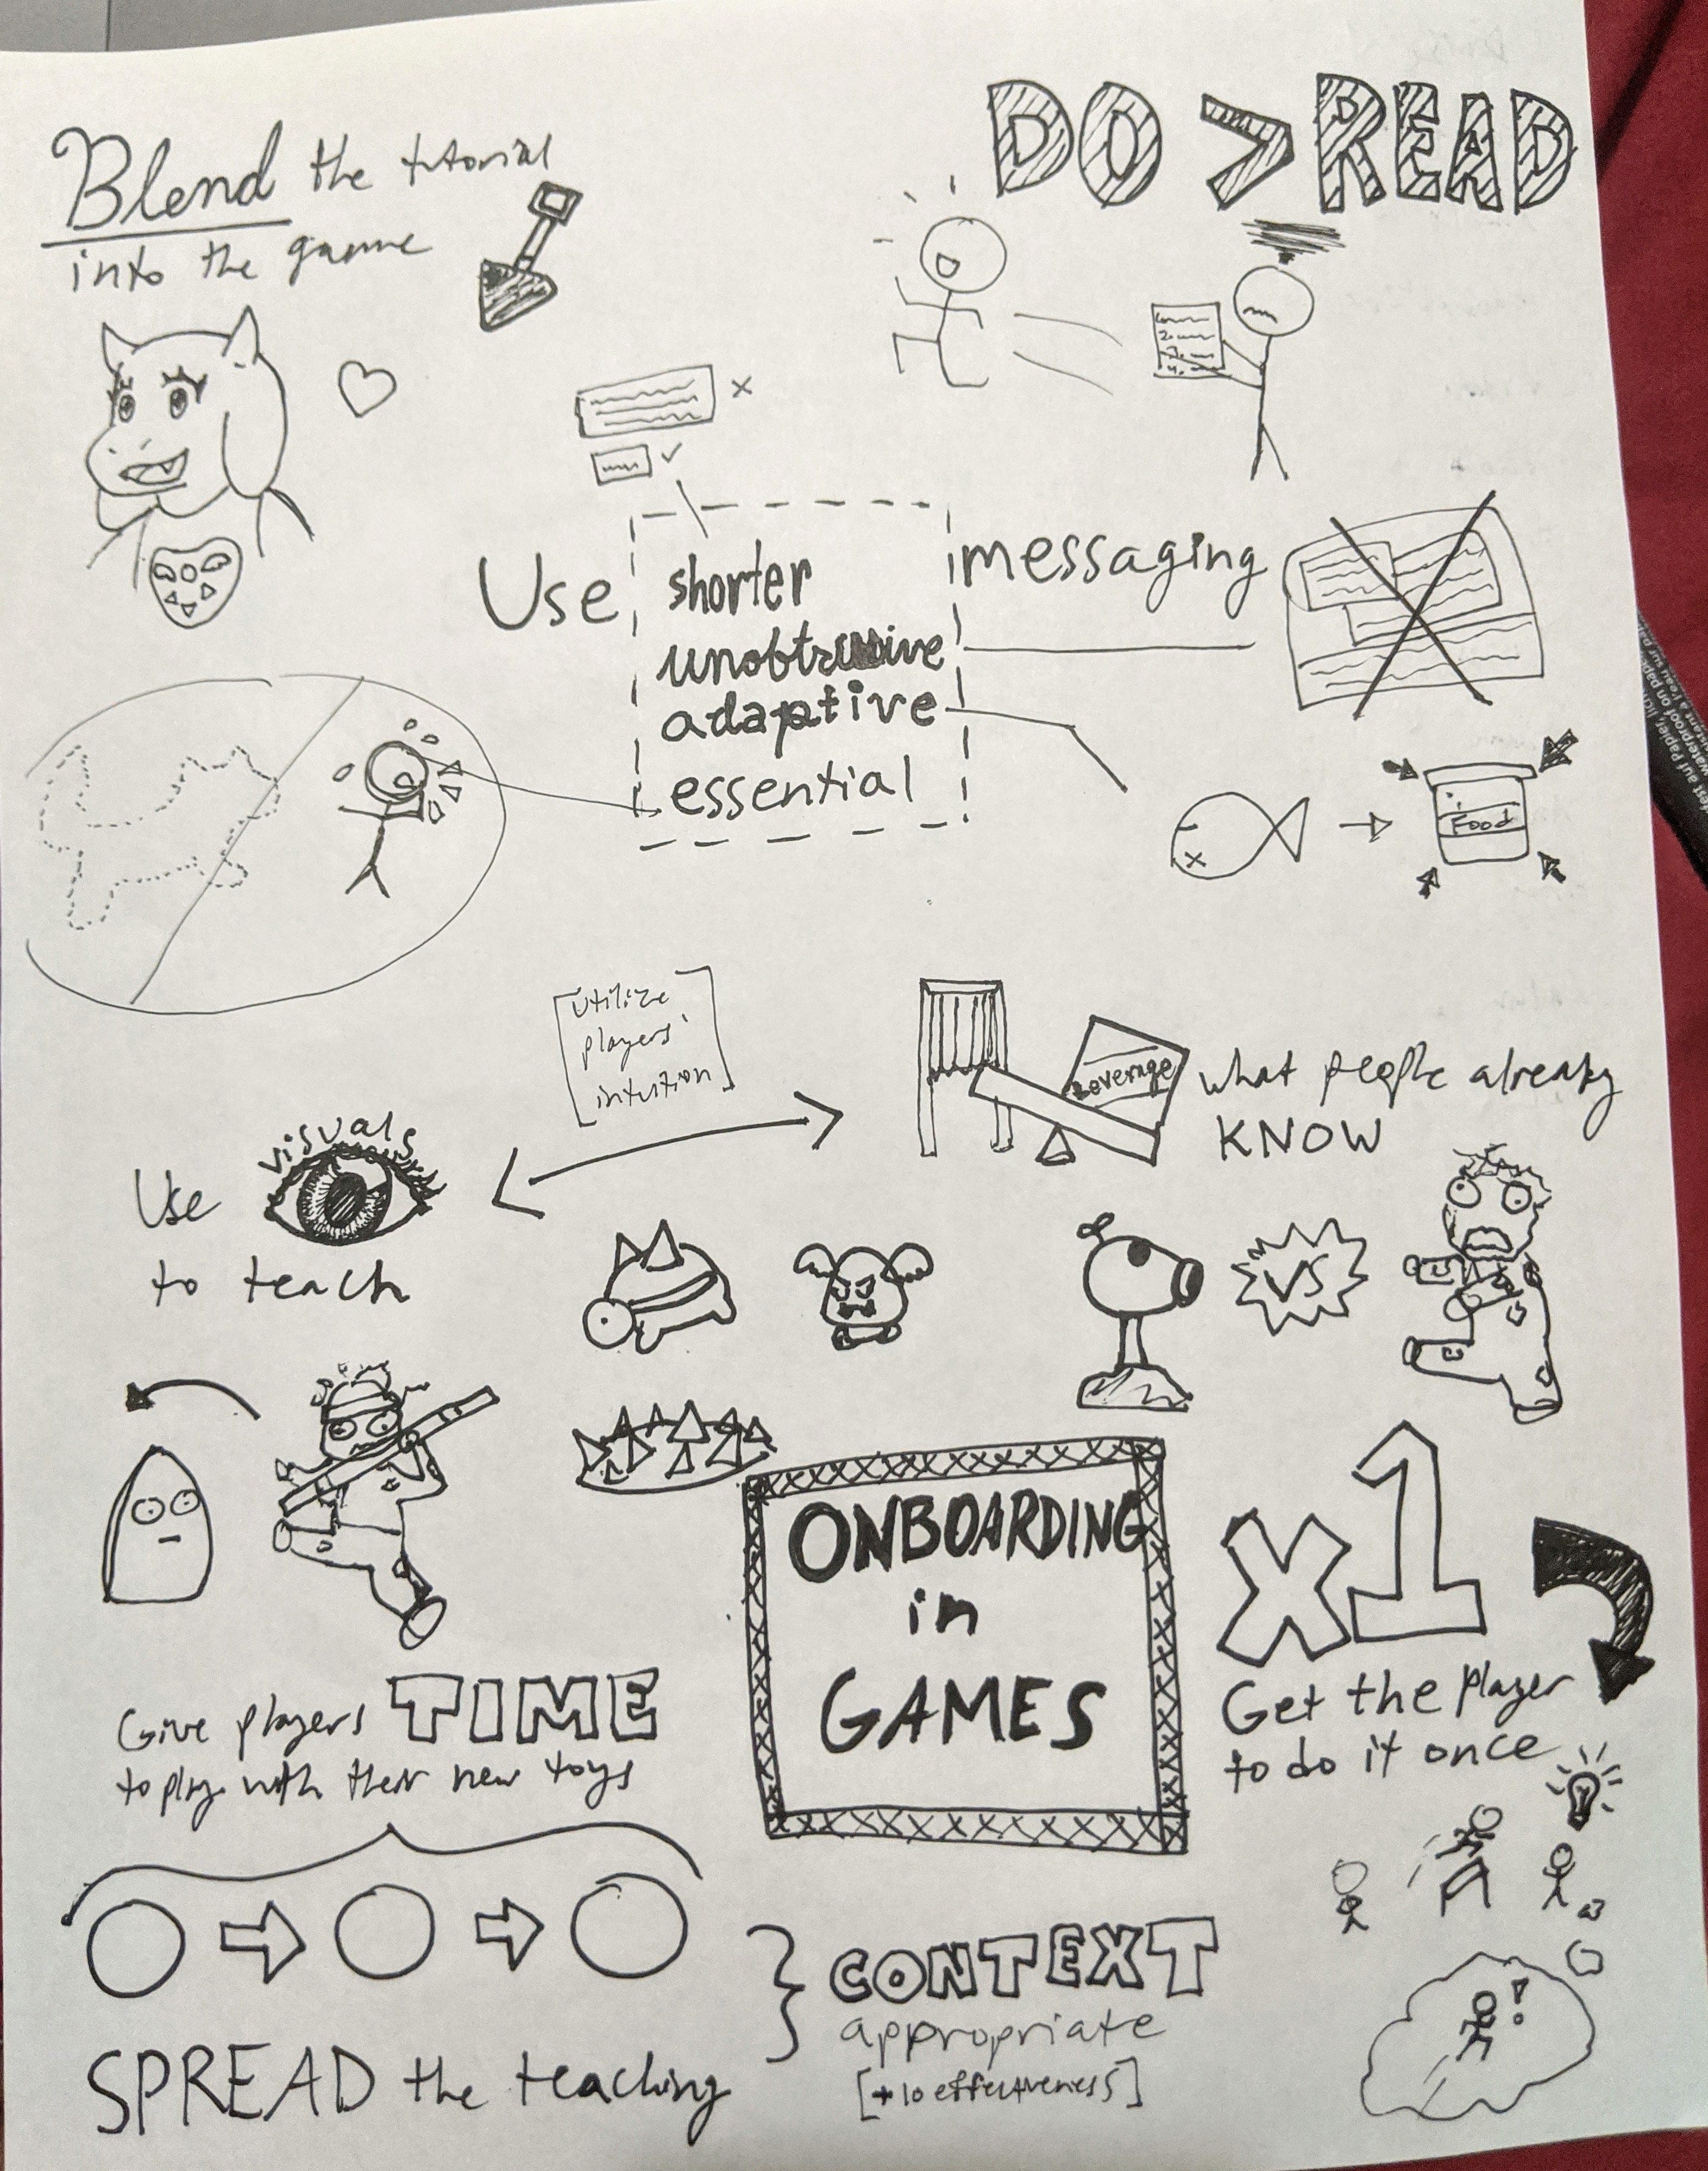 Blend the tutorial
into the game
DO > READ
Use
shorter
unobtrusive
adaptive
essential
messaging
Food
utilize
players'
intuition
Leverage
what people already
KNOW
Use visuals
to teach
VS
ONBOARDING
in
GAMES
x1
Get the player
to do it once
Give players TIME
to play with their new toys
SPREAD the teaching
CONTEXT
appropriate
[+10 effectiveness]